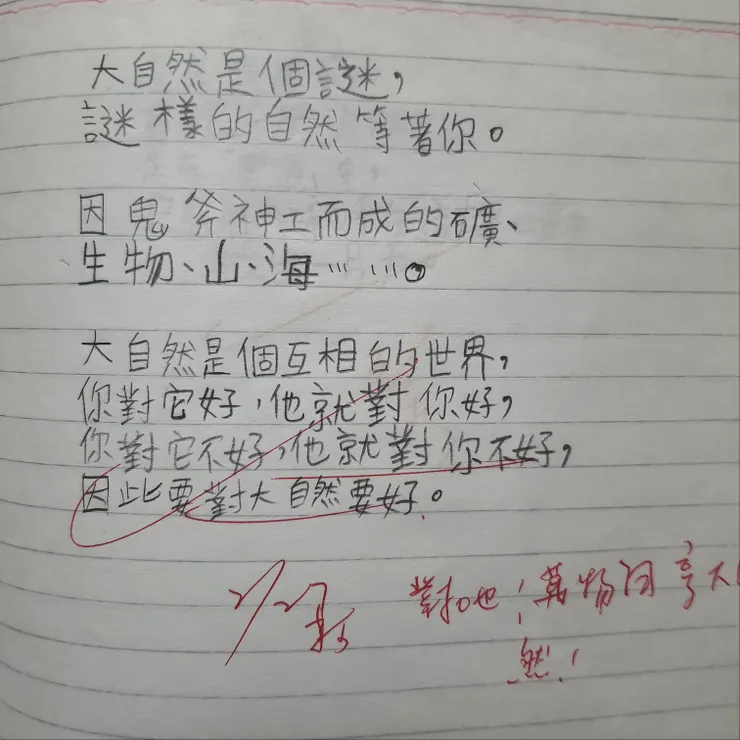 大自然是個謎，
謎樣的自然等著你。
因鬼斧神工而成的礦、
生物、山、海⋯⋯。
大自然是個互相的世界，
你對它好，他就對你好，
你對它不好，他就對你不好，
因此要對大自然要好。
對吔！萬物同享大
然！